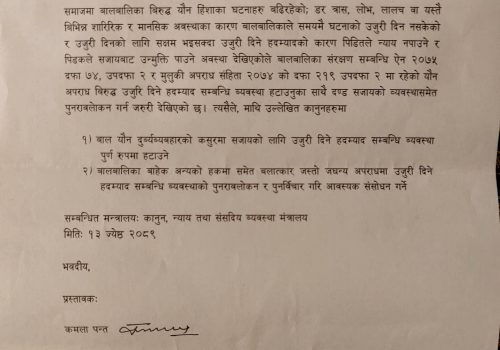 समाजमा बालबालिका बिरुद्ध यौन हिंशाका घटनाहरु बढिरहेको; डर त्रास, लोभ, लालच वा यस्तै
बिभिन्न शारिरिक र मानसिक अवस्थाका कारण बालबालिकाले समयमै घटनाको उजुरी दिन नसकेको
र उजुरी दिनको लागि सक्षम भइसक्दा उजुरी दिने हदम्यादको कारण पिडितले न्याय नपाउने र
पिडकले सजायबाट उन्मुक्ति पाउने अवस्था देखिएकोले बालबालिका संरक्षण सम्बन्धि ऐन २०७५
दफा ७४, उपदफा २ र मुलुकी अपराध संहिता २०७४ को दफा २१९ उपदफा २ मा रहेको यौन
अपराध बिरुद्ध उजुरि दिने हदम्याद सम्बन्धि ब्यवस्था हटाउनुका साथै दण्ड सजायको ब्यवस्थासमेत
पुनरावलोकन गर्न जरुरी देखिएको छ। त्यसैले, माथि उल्लेखित कानुनहरुमा
१) बाल यौन दुर्व्यव्यवहारको कसुरमा सजायको लागि उजुरी दिने हदम्याद सम्बन्धि ब्यवस्था
पुर्ण रुपमा हटाउने
२) बालबालिका बाहेक अन्यको हकमा समेत बलात्कार जस्तो जघन्य अपराधमा उजुरी दिने
हदम्याद सम्बन्धि ब्यवस्थाको पुनरावलोकन र पुनर्विचार गरि आवस्यक संसोधन गर्ने
सम्बन्धित मन्त्रालयः कानुन, न्याय तथा संसदिय ब्यवस्था मंत्रालय
मितिः १३ ज्येष्ठ २०८९
भवदीय,
प्रस्तावकः
कमला पन्त